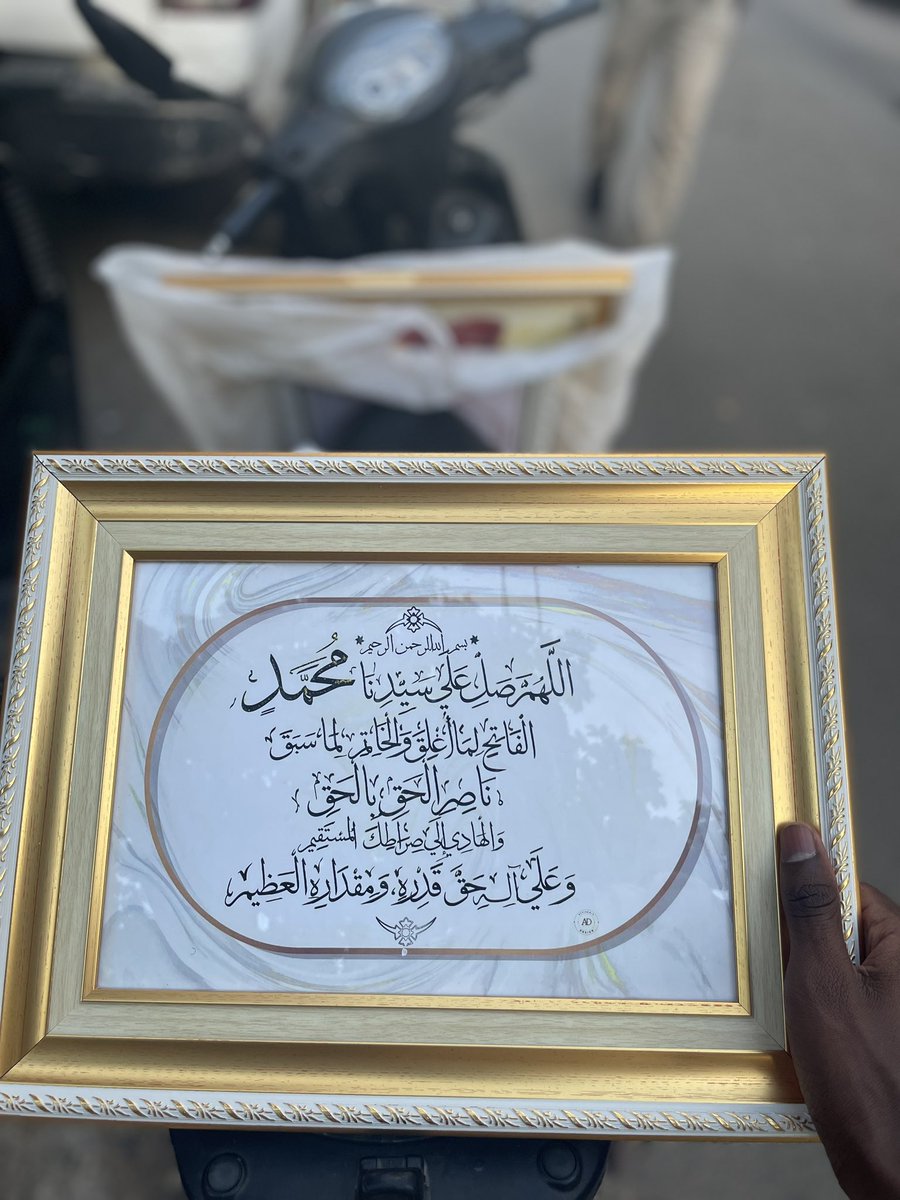 بسم الله الرحمن الرحيم
اللَّهُمَّ صَلِّ عَلَى سَيِّدِنَا مُحَمَّدٍ
الفَاتِحِ لِمَا أُغْلِقَ وَالْخَاتِمِ لِمَا سَبَقَ
نَاصِرِ الْحَقِّ بِالْحَقِّ
وَالْهَادِي إِلَى صِرَاطِكَ الْمُسْتَقِيمِ
وَعَلَى آلِهِ حَقَّ قَدْرِهِ وَمِقْدَارِهِ الْعَظِيمِ
AD